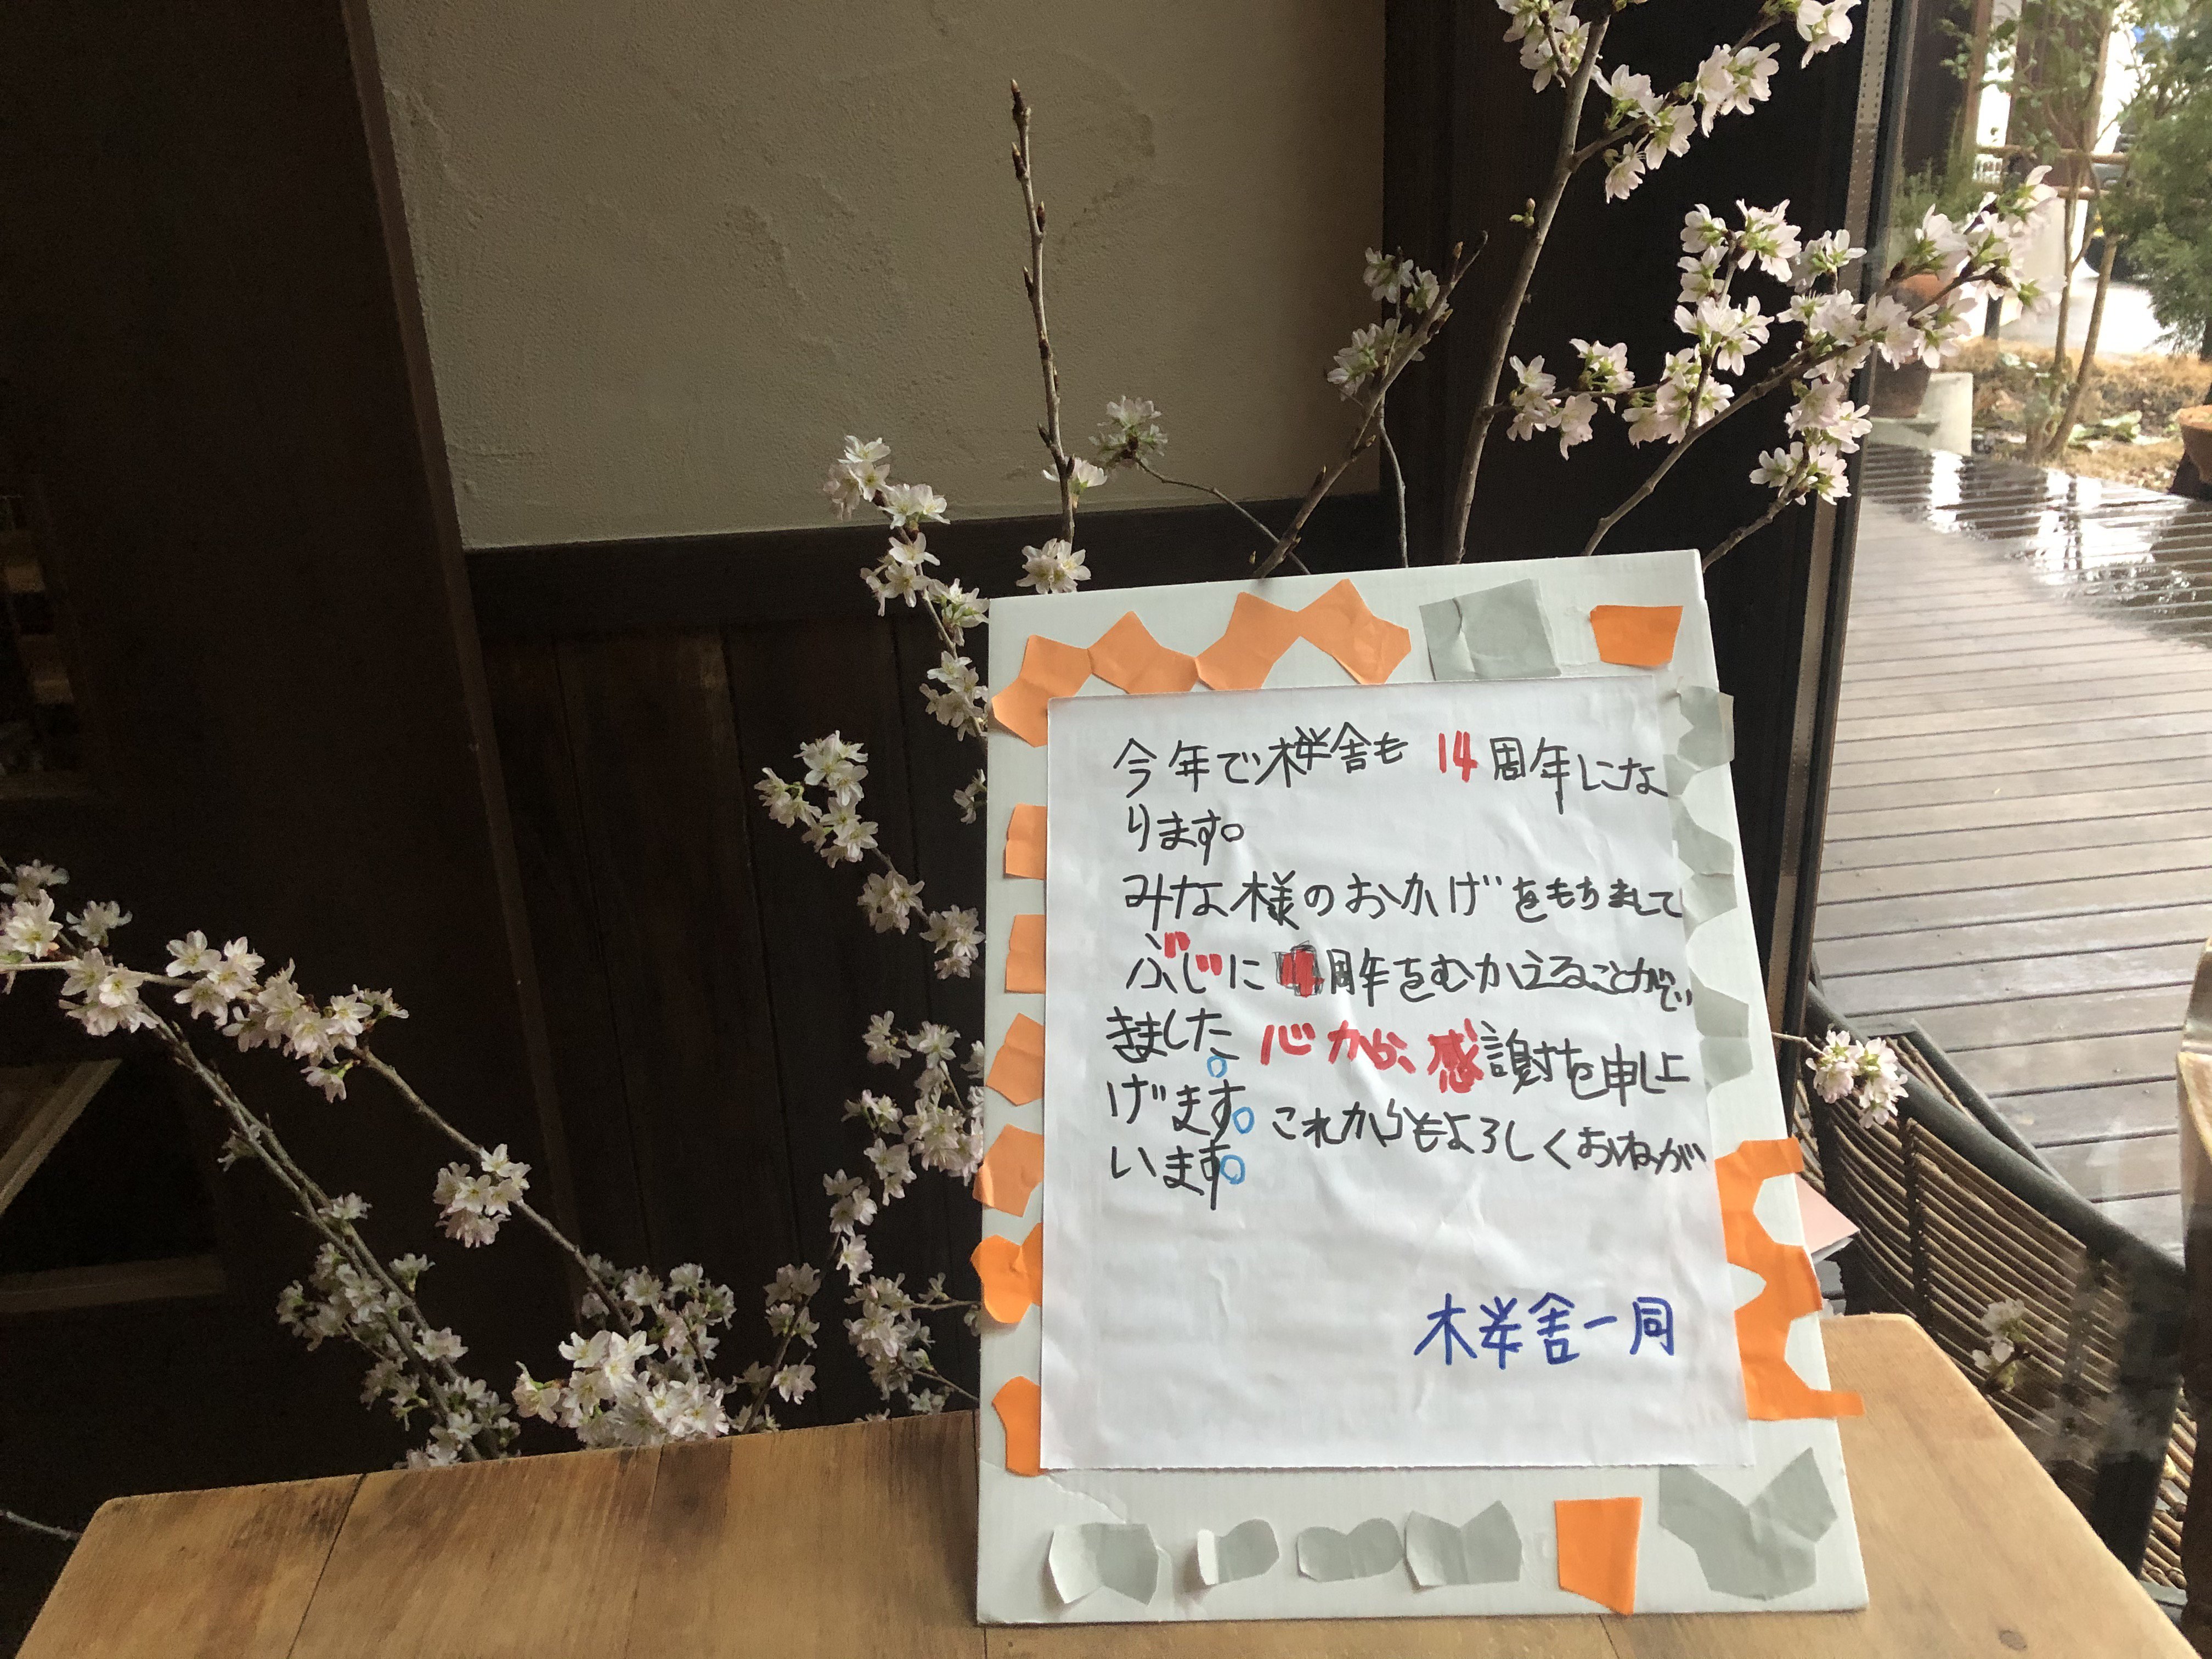 今年で木桜舎も 14 周年にな
ります。
みな様のおかげをもちまして
ぶじに 周年をむかえることがで
きました。心から感謝を申し上
げます。これからもよろしくおねがい
います。
舎一同